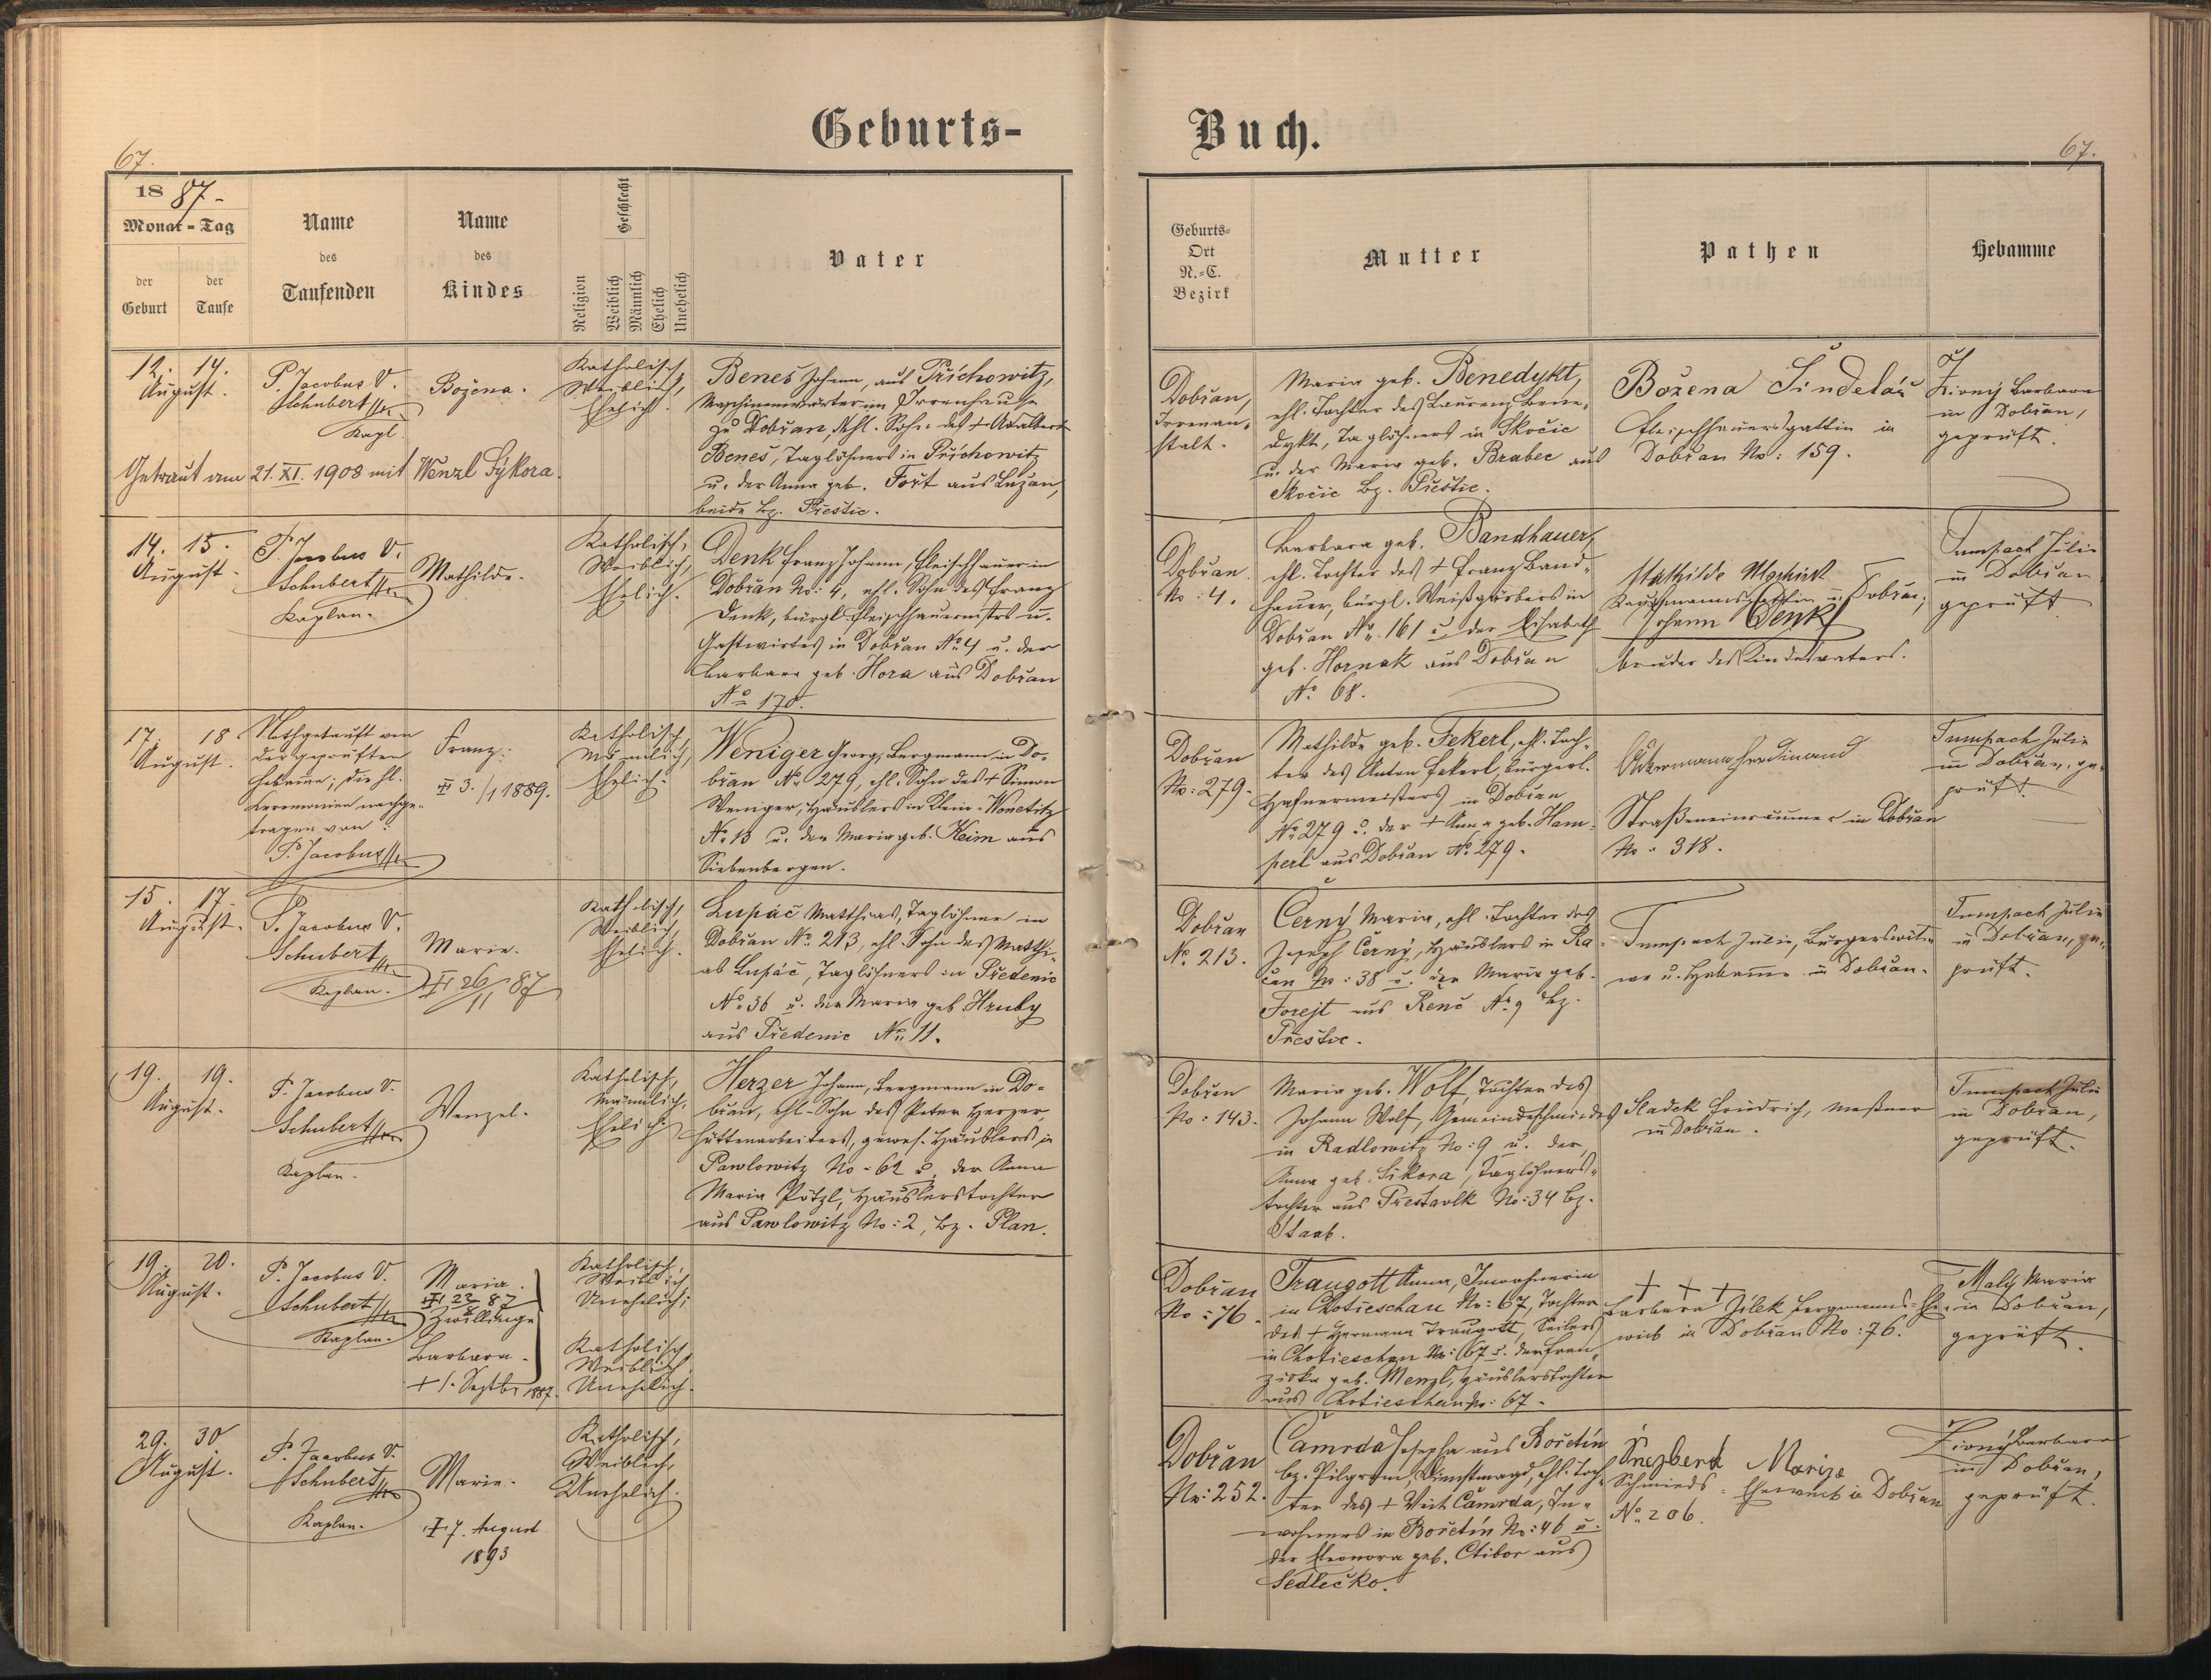 Geburts-
Buch.
67.
67.
18 87-
Monat - Tag
der
Geburt
der
Taufe
Name
des
Taufenden
Name
des
Kindes
Religion
Geschlecht
Weiblich
Männlich
Ehelich
Unehelich
Vater
Geburts-
Ort
N.-C.
Bezirk
Mutter
Pathen
Hebamme
12. 14.
August.
P. Jacobus V.
Schubert
Kapl.
Božena.
Katholisch,
Weiblich,
Ehelich.
Beneš Johann, aus Přichowitz,
Maschinenwärter im Irrenhause
zu Dobřan, ehl. Sohn des + Adalbert
Beneš, Taglöhners in Přichowitz
u. der Anna geb. Fořt aus Lužan,
beide Bz. Přestic.
Getraut am 21. XI. 1908 mit Wenzl Sýkora.
Dobřan,
Irrenan-
stalt.
Maria geb. Benedykt,
ehl. Tochter des Laurenz Bene-
dykt, Taglöhners in Skočic
u. der Maria geb. Brabec aus
Skočic Bz. Přestic.
Božena Šindelář
Fleischhauersgattin in
Dobřan No: 159.
Barbara
in Dobřan,
geprüft.
14. 15.
August.
P. Jacobus V.
Schubert
Kaplan.
Mathilde.
Katholisch,
Weiblich,
Ehelich.
Denk Franz Johann, Fleischhauer in
Dobřan No: 4, ehl. Sohn des Franz
Denk, bürgl. Fleischhauermeisters u.
Gastwirtes in Dobřan No 4 u. der
Barbara geb. Hora aus Dobřan
No 170.
Dobřan
No: 4.
Barbara geb. Bandhauer,
ehl. Tochter des + Franz Band-
hauer, bürgl. Weißgärbers in
Dobřan No. 161 u. der Elisabeth
geb. Hornak aus Dobřan
No 68.
Mathilde
Kaufmannsgattin in Dobřan;
Johann Denk
bruder des Kindesvaters.
Tumpach Julie
in Dobřan
geprüft
17. 18
August.
Nothgetauft von
der geprüften
Hebamme; die hl.
Ceremonien nachge-
tragen von:
P. Jacobus
Franz.
3./1 1889.
Katholisch,
Männlich,
Ehelich.
Weniger Georg, Bergmann in Do-
břan No 279, ehl. Sohn des + Simon
Weniger, Häuslers in Klein-Wonetitz
No 13 u. der Maria geb. Keim aus
Siebenbergen.
Dobřan
No: 279.
Mathilde geb. Fekerl, ehl. Toch-
ter des Anton Fekerl, bürgerl.
Hafnermeisters in Dobřan
No 279 u. der + Anna geb. Ham-
perl aus Dobřan No 279.
Ackermann Ferdinand
Straßeneinräumer in Dobřan
No: 318.
Tumpach Julie
in Dobřan, ge-
prüft.
15. 17.
August.
P. Jacobus V.
Schubert
Kaplan.
Marie.
26/11 87
Katholisch,
Weiblich,
Ehelich.
Lupáč Matthias, Taglöhner in
Dobřan No 213, ehl. Sohn des Matthi-
as Lupáč, Taglöhners in Předenic
No 36 u. der Maria geb. Hruby
aus Předenic No 11.
Dobřan
No 213.
Černý Maria, ehl. Tochter des
Joseph Černý, Häuslers in Ra-
čan No: 38 u. der Maria geb.
Forejt aus Renč No 9 Bz.
Přestic.
Tumpach Julie, Bürgerswit-
we u. Hebamme in Dobřan.
Tumpach Julie
in Dobřan, ge-
prüft.
19. 19.
August.
P. Jacobus V.
Schubert
Kaplan.
Wenzel.
Katholisch,
Männlich,
Ehelich.
Herzer Johann, Bergmann in Do-
břan, ehl. Sohn des Peter Herzer,
Hüttenarbeiters, gewes. Häuslers in
Pawlowitz No - 62 u. der Anna
Maria Pötzl, Häuslerstochter
aus Pawlowitz No: 2, Bz. Plan.
Dobřan
No: 143.
Maria geb. Wolf, Tochter des
Johann Wolf, Gemeindeschmiedes
in Radlowitz No: 9 u. der
Anna geb. Sikora, Taglöhners-
tochter aus Přestavlk No: 34 Bz.
Staab.
Sladek Friedrich, Meßner
in Dobřan.
Tumpach Julie
in Dobřan,
geprüft.
19. 20.
August.
P. Jacobus V.
Schubert
Kaplan.
Maria.
23/8 87
Zwillinge
Barbara.
+ 1. Septbr 1887.
Katholisch,
Weiblich,
Unehelich;
Katholisch,
Weiblich,
Unehelich.
Dobřan
No: 76.
Traugott Anna, Inwohnerin
in Chotieschau No: 67, Tochter
des + Hermann Traugott, Seilers
in Chotieschau No: 67 u. der Fran-
ziska geb. Menzl, Häuslerstochter
aus Chotieschau No: 67.
+ + +
Barbara Jilek Bergmanns-Ehe-
weib in Dobřan No: 76.
Malý Maria
in Dobřan,
geprüft.
29. 30
August.
P. Jacobus V.
Schubert
Kaplan.
Marie.
7. August
1893
Katholisch,
Weiblich,
Unehelich.
Dobřan
No: 252.
Čamrda Josepha aus Bořetín
bz. Pilgram, Dienstmagd, ehl. Toch-
ter des + Veit Čamrda, In-
wohners in Bořetín No: 46 u.
der Eleonora geb. Ctibor aus
Sedlečko.
Marie
Schmieds-Eheweib in Dobřan
No 206.
Barbara
in Dobřan,
geprüft.